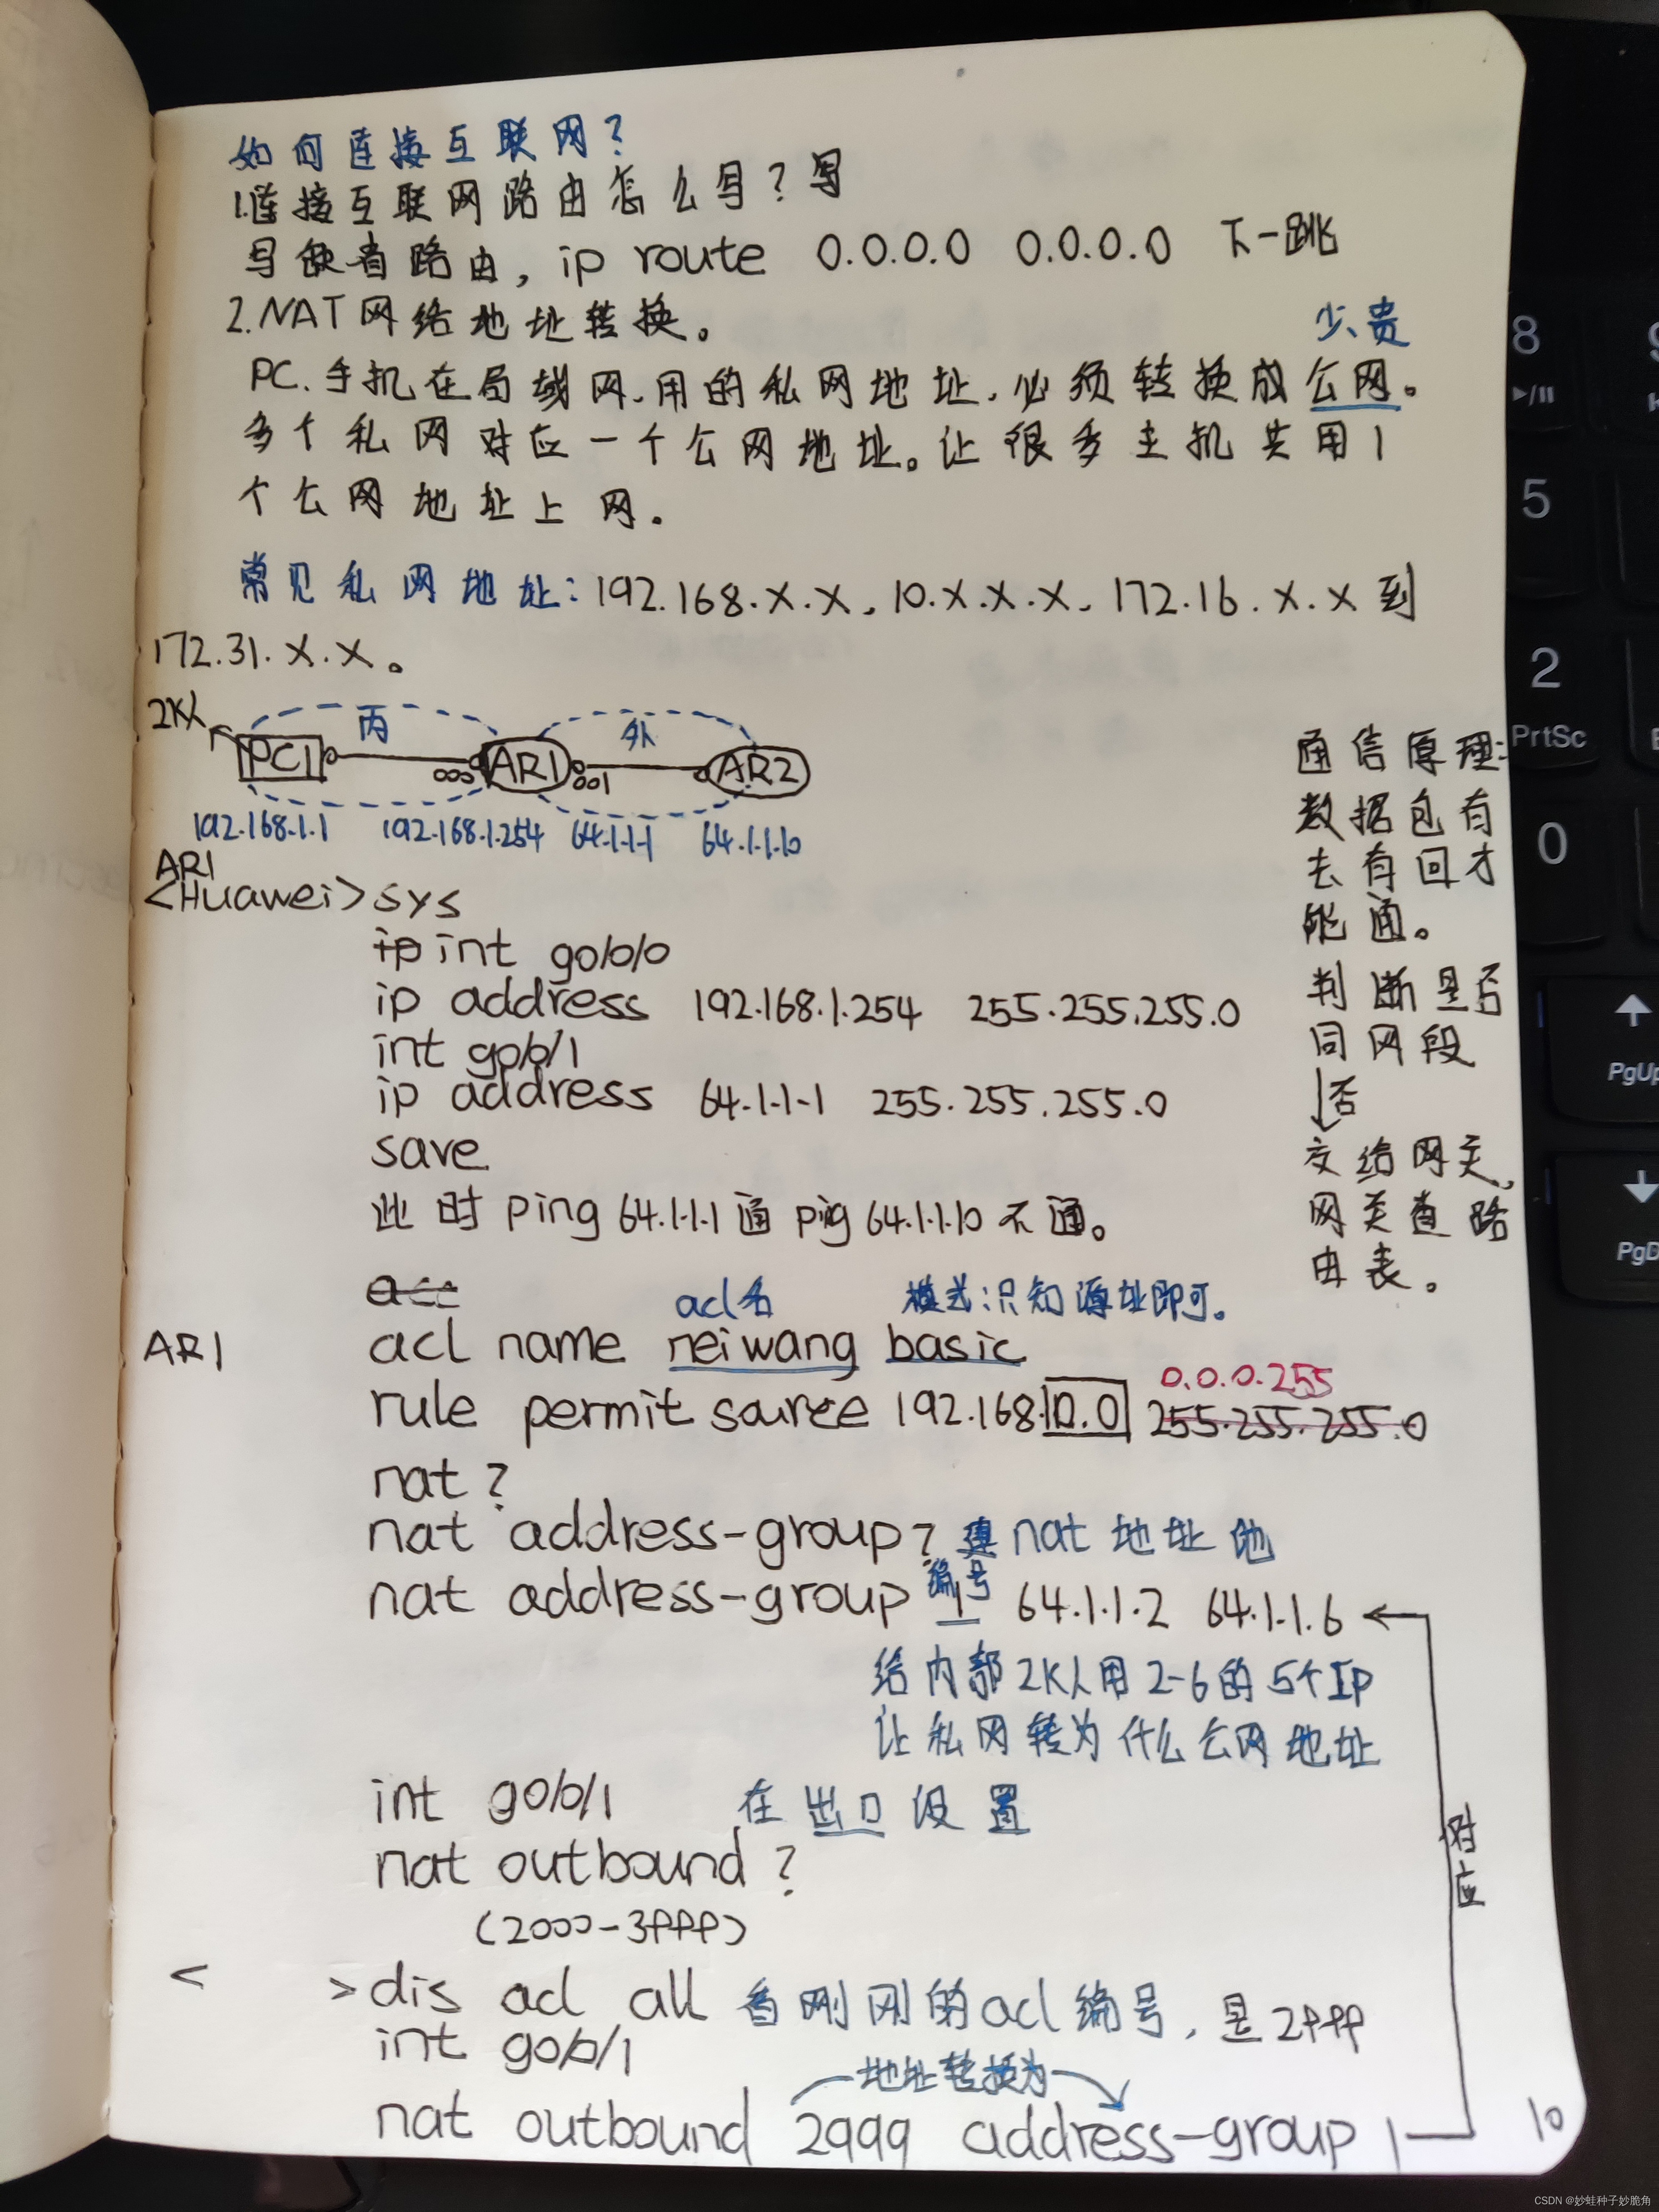 如何连接互联网?
1.连接互联网路由怎么写?写
写缺省路由, ip route 0.0.0.0 0.0.0.0 下一跳
2.NAT网络地址转换。
少、贵
PC、手机在局域网、用的私网地址、必须转换成公网。
多个私网对应一个公网地址。让很多主机共用1
个公网地址上网。
常见私网地址: 192.168.X.X、10.X.X.X、172.16.X.X到
172.31.X.X。
2K人
内 外
PC1 000 AR1 001 AR2
192.168.1.1 192.168.1.254 64.1.1.1 64.1.1.10
AR1
<Huawei>sys
ip int g0/0/0
ip address 192.168.1.254 255.255.255.0
int g0/0/1
ip address 64.1.1.1 255.255.255.0
save
此时ping 64.1.1.1通 ping 64.1.1.10不通。
通信原理:
数据包有
去有回才
能通。
判断是否
同网段
否
交给网关、
网关查路
由表。
acc
acl名 模式:只知源址即可。
AR1 acl name neiwang basic
0.0.0.255
rule permit source 192.168.10.0 255.255.255.0
nat ?
nat address-group ? 建nat地址池
编号
nat address-group 1 64.1.1.2 64.1.1.6
给内部2K人用2-6的5个IP
让私网转为什么公网地址
int g0/0/1 在出口设置
nat outbound ?
对应
(2000-3999)
< >dis acl all 看刚刚的acl编号,是2999
int g0/0/1
地址转换为
nat outbound 2999 address-group 1
10
8
5
2
PrtSc
0
PgUp
PgD
CSDN @妙蛙种子妙脆角